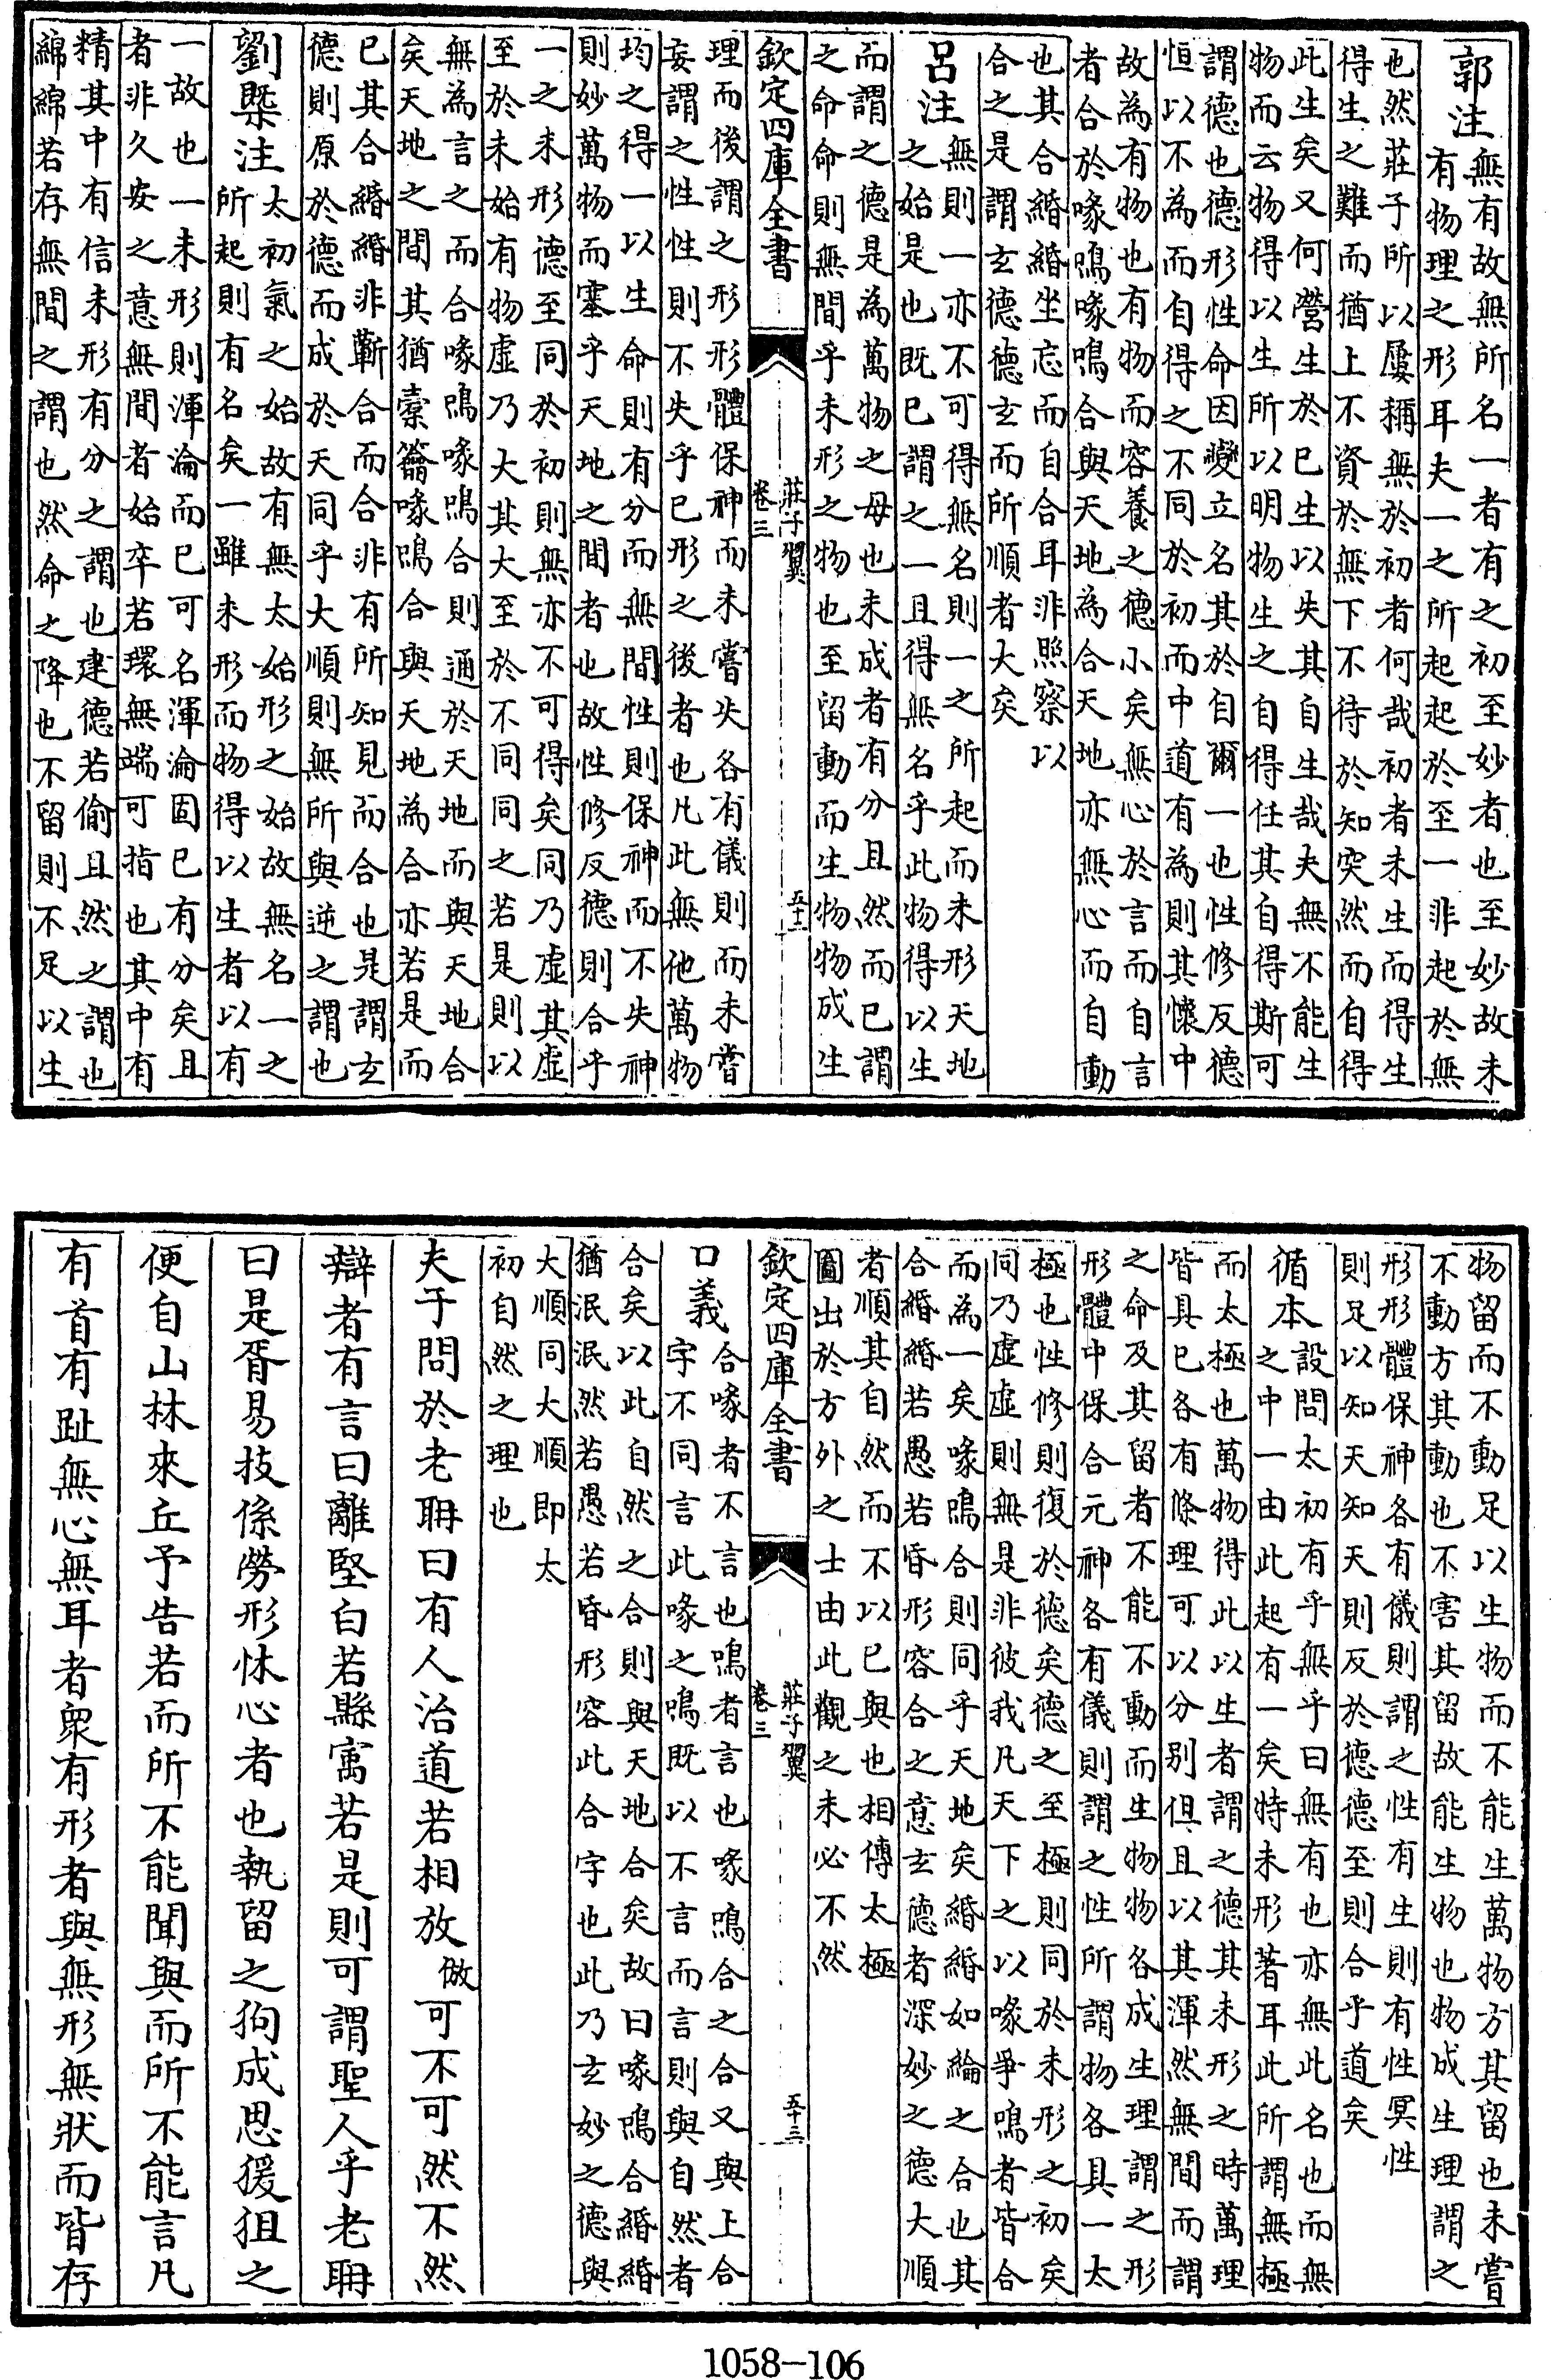 郭注
無有故無所名一者有之初至妙者也至妙故未
有物理之形耳夫一之所起起於至一非起於無
也然莊子所以屢稱無於初者何哉初者未生而得生
得生之難而猶上不資於無下不待於知突然而自得
此生矣又何營生於已生以失其自生哉夫無不能生
物而云物得以生所以明物生之自得任其自得斯可
謂德也德形性命因變立名其於自爾一也性修反德
恒以不為而自得之不同於初而中道有為則其懷中
故為有物也有物而容養之德小矣無心於言而自言
者合於喙鳴喙鳴合與天地為合天地亦無心而自動
也其合緡緡坐忘而自合耳非照察以
合之是謂玄德德玄而所順者大矣
呂注
無則一亦不可得無名則一之所起而未形天地
之始是也既已謂之一且得無名乎此物得以生
而謂之德是為萬物之母也未成者有分且然而已謂
之命命則無間乎未形之物也至留動而生物物成生
欽定四庫全書
莊子翼
卷三
五十二
理而後謂之形形體保神而未嘗失各有儀則而未嘗
妄謂之性性則不失乎已形之後者也凡此無他萬物
均之得一以生命則有分而無間性則保神而不失神
則妙萬物而塞乎天地之間者也故性修反德則合乎
一之未形德至同於初則無亦不可得矣同乃虛其虛
至於未始有物虛乃大其大至於不同同之若是則以
無為言之而合喙鳴喙鳴合則通於天地而與天地合
矣天地之間其猶橐籥喙鳴合與天地為合亦若是而
已其合緡緡非蘄合而合非有所知見而合也是謂玄
德則原於德而成於天同乎大順則無所與逆之謂也
劉槩注
太初氣之始故有無太始形之始故無名一之
所起則有名矣一雖未形而物得以生者以有
一故也一未形則渾淪而已可名渾淪固已有分矣且
者非久安之意無間者始卒若環無端可指也其中有
精其中有信未形有分之謂也建德若偷且然之謂也
綿綿若存無間之謂也然命之降也不留則不足以生
物留而不動足以生物而不能生萬物方其留也未嘗
不動方其動也不害其留故能生物也物成生理謂之
形形體保神各有儀則謂之性有生則有性冥性
則足以知天知天則反於德德至則合乎道矣
循本
設問太初有乎無乎曰無有也亦無此名也而無
之中一由此起有一矣特未形著耳此所謂無極
而太極也萬物得此以生者謂之德其未形之時萬理
皆具已各有條理可以分別但且以其渾然無間而謂
之命及其留者不能不動而生物物各成生理謂之形
形體中保合元神各有儀則謂之性所謂物各具一太
極也性修則復於德矣德之至極則同於未形之初矣
同乃虛虛則無是非彼我凡天下之以喙爭鳴者皆合
而為一矣喙鳴合則同乎天地矣緡緡如綸之合也其
合緡緡若愚若昏形容合之意玄德者深妙之德大順
者順其自然而不以已與也相傳太極
圖出於方外之士由此觀之未必不然
欽定四庫全書
莊子翼
卷三
五十三
口義
合喙者不言也鳴者言也喙鳴合之合又與上合
字不同言此喙之鳴既以不言而言則與自然者
合矣以此自然之合則與天地合矣故曰喙鳴合緡緡
猶泯泯然若愚若昏形容此合字也此乃玄妙之德與
大順同大順即太
初自然之理也
夫子問於老聃曰有人治道若相放倣可不可然不然
辯者有言曰離堅白若縣寓若是則可謂聖人乎老聃
曰是胥易技係勞形怵心者也執留之狗成思猨狙之
便自山林來丘予告若而所不能聞與而所不能言凡
有首有趾無心無耳者衆有形者與無形無狀而皆存
1058-106